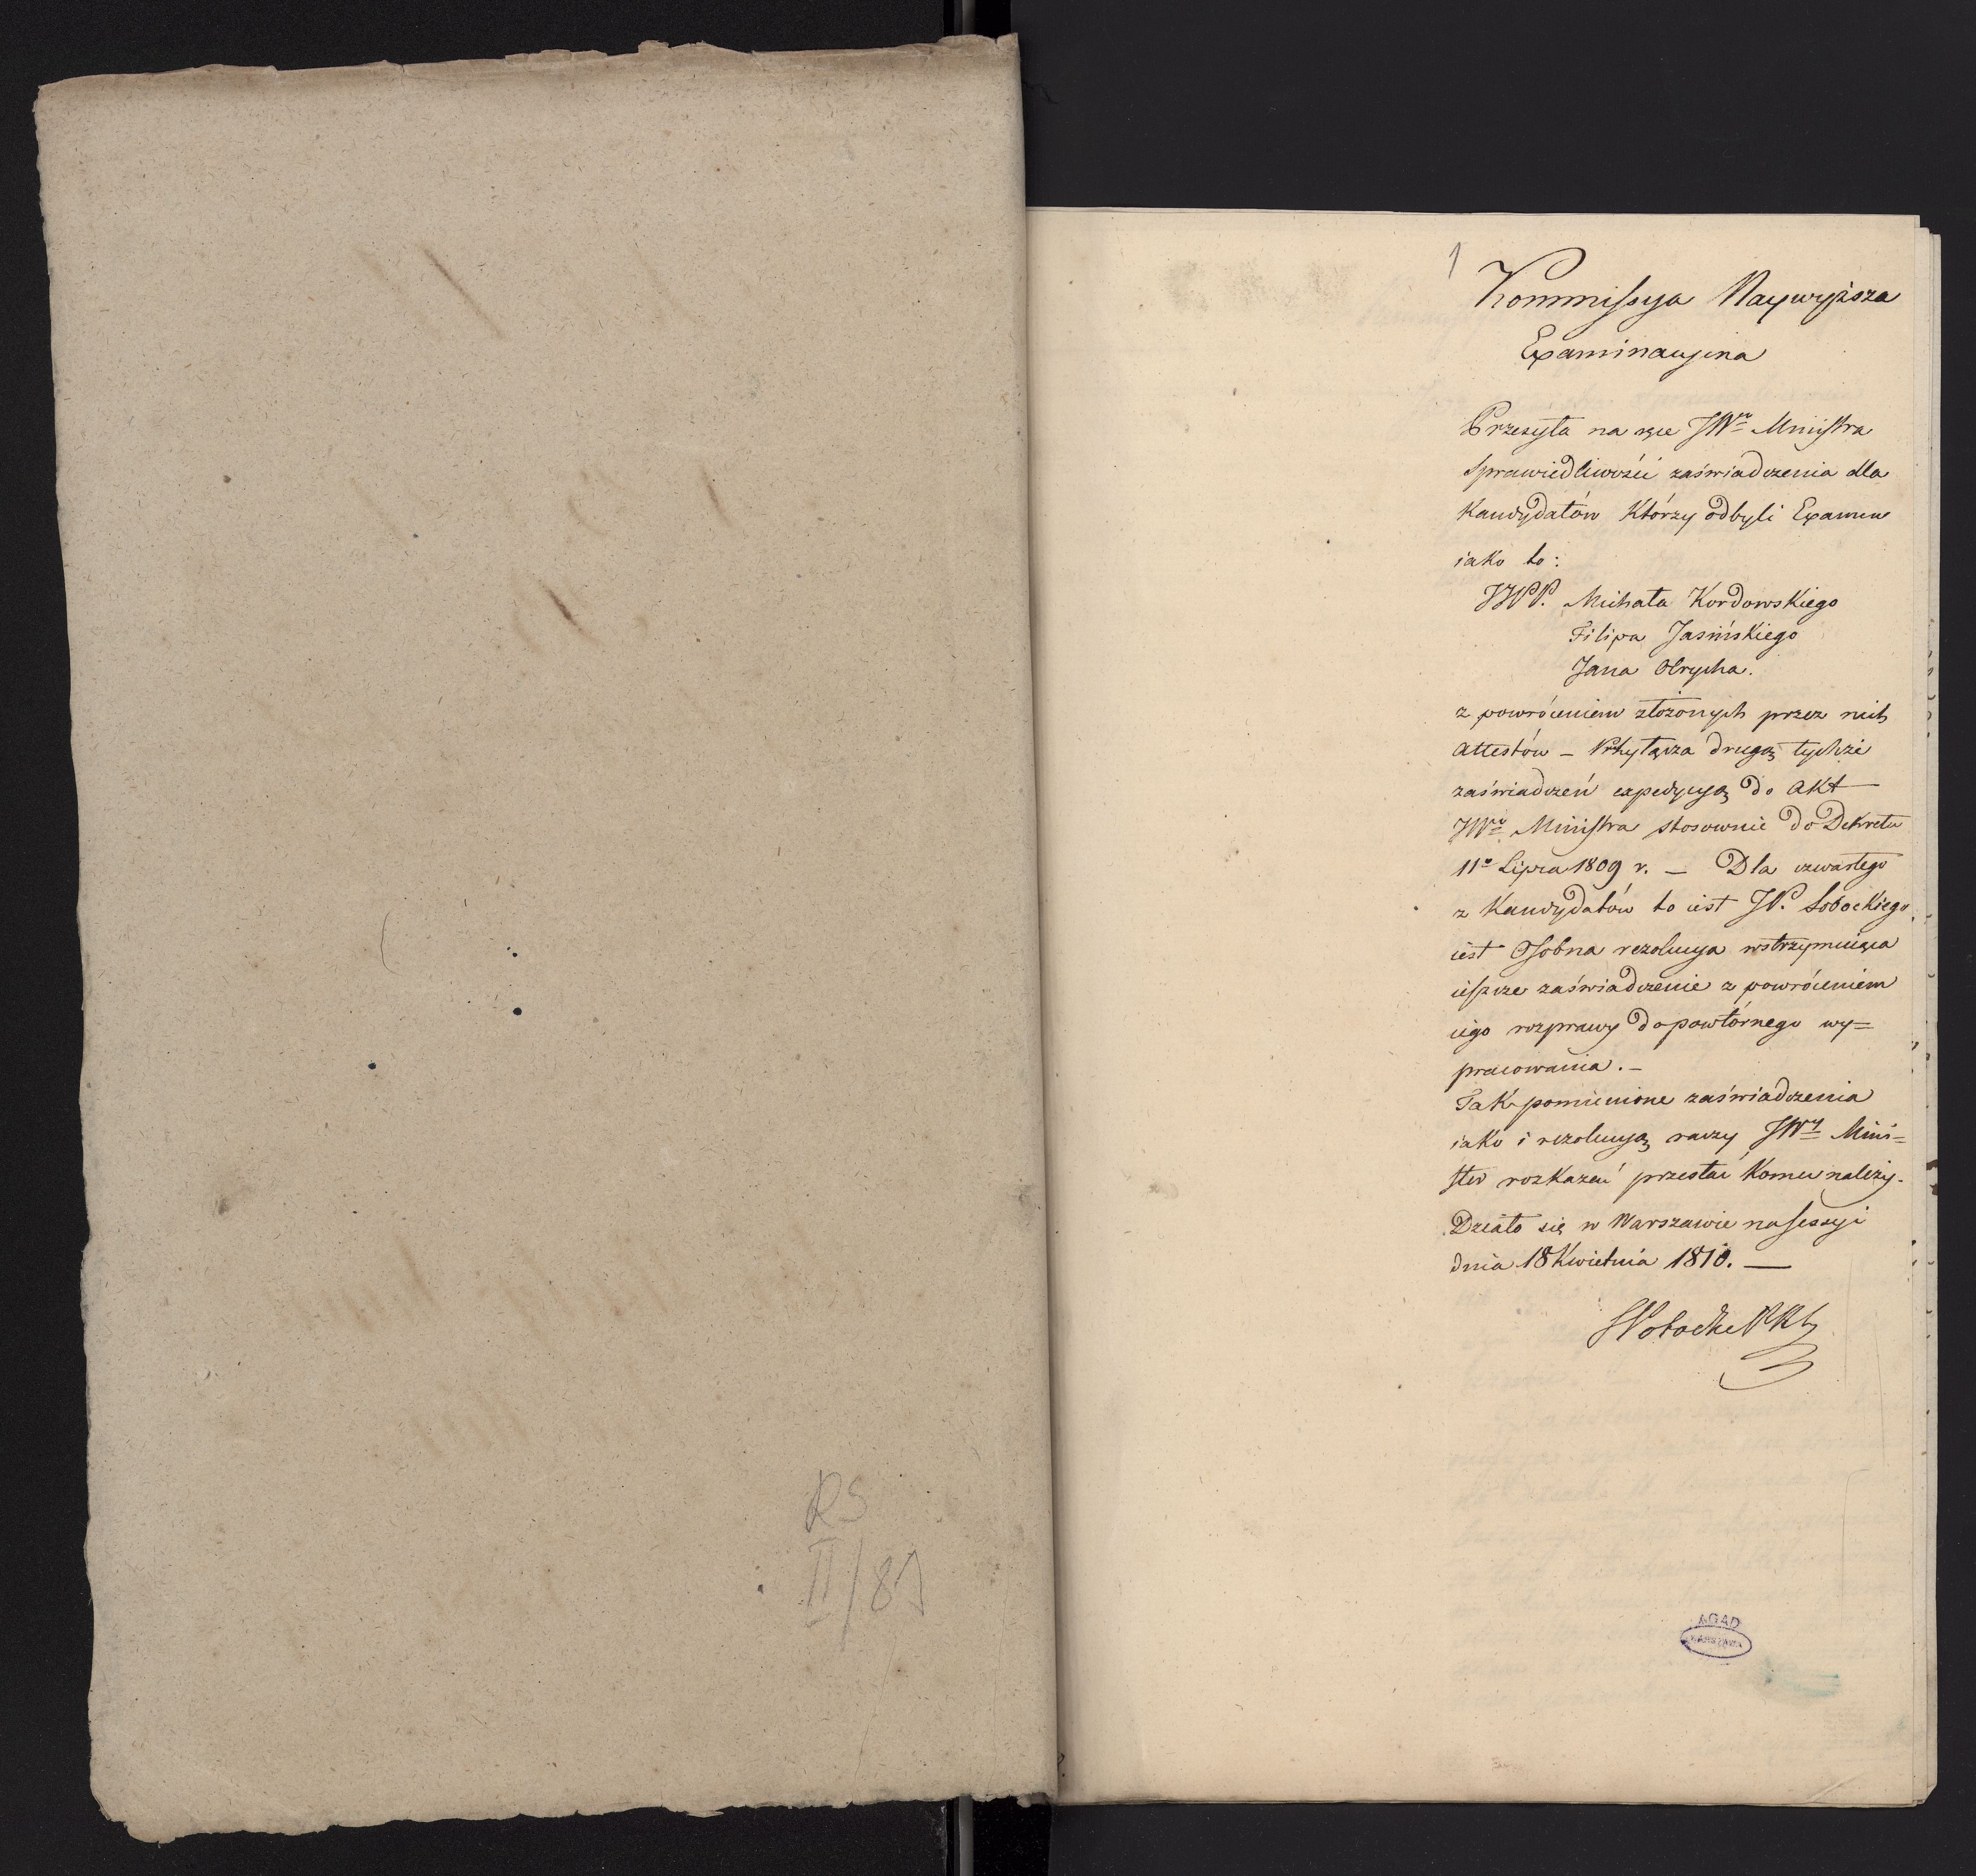 RS
II/81
1
Kommissya Naywyższa
Examinacyina
Przesyła na ręce JWgo Ministra
Sprawiedliwości zaświadczenia dla
Kandydatów Którzy odbyli Examen
iako to:
JJPP. Michała Kordowskiego
Filipa Jasińskiego
Jana Olrycha.
z powróceniem złożonych przez nich
Attestów – Przyłącza drugą tychże
zaświadczeń expedycyą do Akt
JWgo Ministra stosownie do Dekretu
11go Lipca 1809 r. – Dla czwartego
z Kandydatów to iest JP. Sobockiego
iest Osobna rezolucya wstrzymuiąca
ieszcze zaświadczenie z powróceniem
iego rozprawy do powtórnego wy=
pracowania. –
Tak pomienione zaświadczenia
iako i rezolucyą raczy JWny Mini=
ster rozkazać przesłać Komu należy.
Działo się w Warszawie na Sessyi
dnia 18 Kwietnia 1810. —
AGAD
WARSZAWA